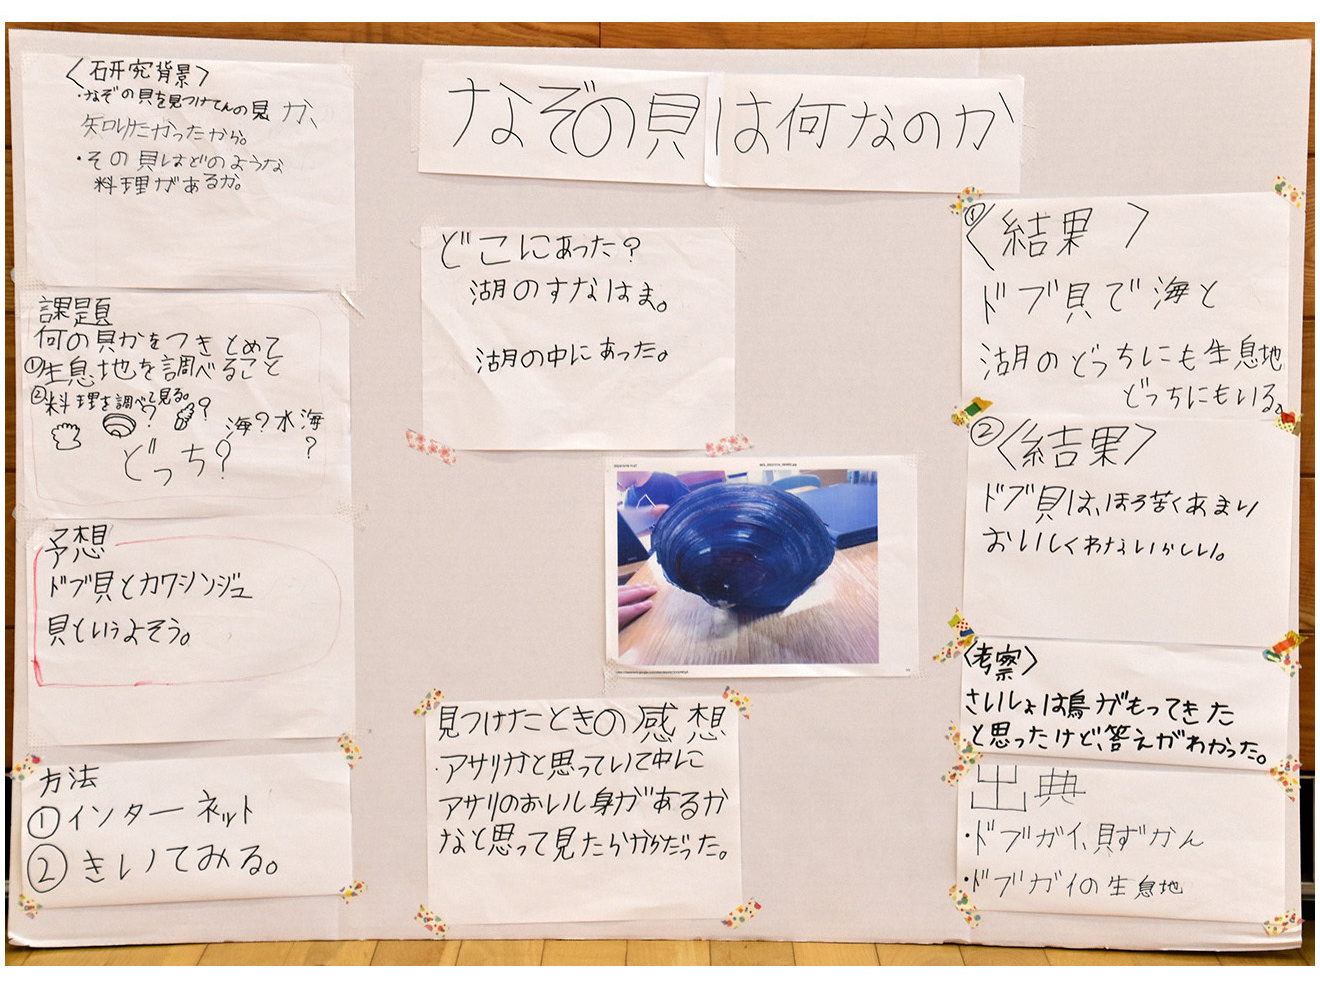 なぞの貝は何なのか
〈研究背景〉
・なぞの貝を見つけてんの貝か、
知りたかったから。
・その貝はどのような
料理があるか。
課題
何の貝かをつきとめて
①生息地を調べること
②料理を調べて見る。
? ?
海?水海
?
どっち?
予想
ドブ貝とカワシンジュ
貝というよそう。
方法
①インターネット
②きいてみる。
どこにあった?
湖のすなはま。
湖の中にあった。
見つけたときの感想
・アサリかと思っていて中に
アサリのおいし身があるか
なと思って見たらからだった。
①〈結果〉
ドブ貝で海と
湖のどっちにも生息地
どっちにもいる。
②〈結果〉
ドブ貝は、ほろ苦くあまり
おいしくわないらしい。
〈考察〉
さいしょは鳥がもってきた
と思ったけど、答えがわかった。
出典
・ドブガイ、貝ずかん
・ドブガイの生息地